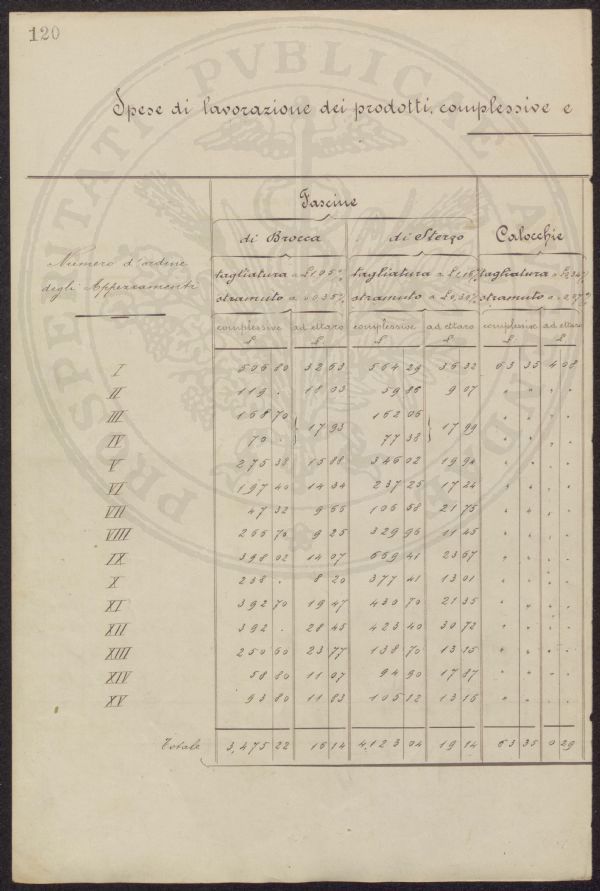 120
PROSPERITATI PVBLICAE AVGENDAE
Spese di lavorazione dei prodotti, complessive e
Fascine
di Brocca di Sterzo Calocchie
Numero d'ordine
degli Appezzamenti
tagliatura a £ 1.05 % tagliatura a £ 1.16 % tagliatura a £
stramuto a 0.035 % stramuto a £ 0,30 % stramuto a
complessive ad ettaro complessive ad ettaro complessive ad ettaro
£ £ £ £ £ £
I 506 80 32 63 564 29 36 32 63 35 4 08
II 119 . 18 03 59 86 9 07 " " " "
III 168 70 162 06 " " " "
17 93 17 99
IV 70 . 77 38 " " " "
V 275 38 15 88 346 02 19 94 " " " "
VI 197 40 14 34 237 25 17 24 " " " "
VII 47 32 9 66 106 58 21 75 " " " "
VIII 266 70 9 25 329 96 11 45 " " " "
IX 398 02 14 07 669 41 23 67 " " " "
X 238 . 8 20 377 41 13 01 " " " "
XI 392 70 19 47 430 70 21 35 " " " "
XII 392 . 28 45 423 40 30 72 " " " "
XIII 250 60 23 77 138 70 13 15 " " " "
XIV 58 80 11 07 94 90 17 87 " " " "
XV 93 80 11 83 105 12 13 16 " " " "
Totale 3,475 22 16 14 4,123 04 19 14 63 35 0 29